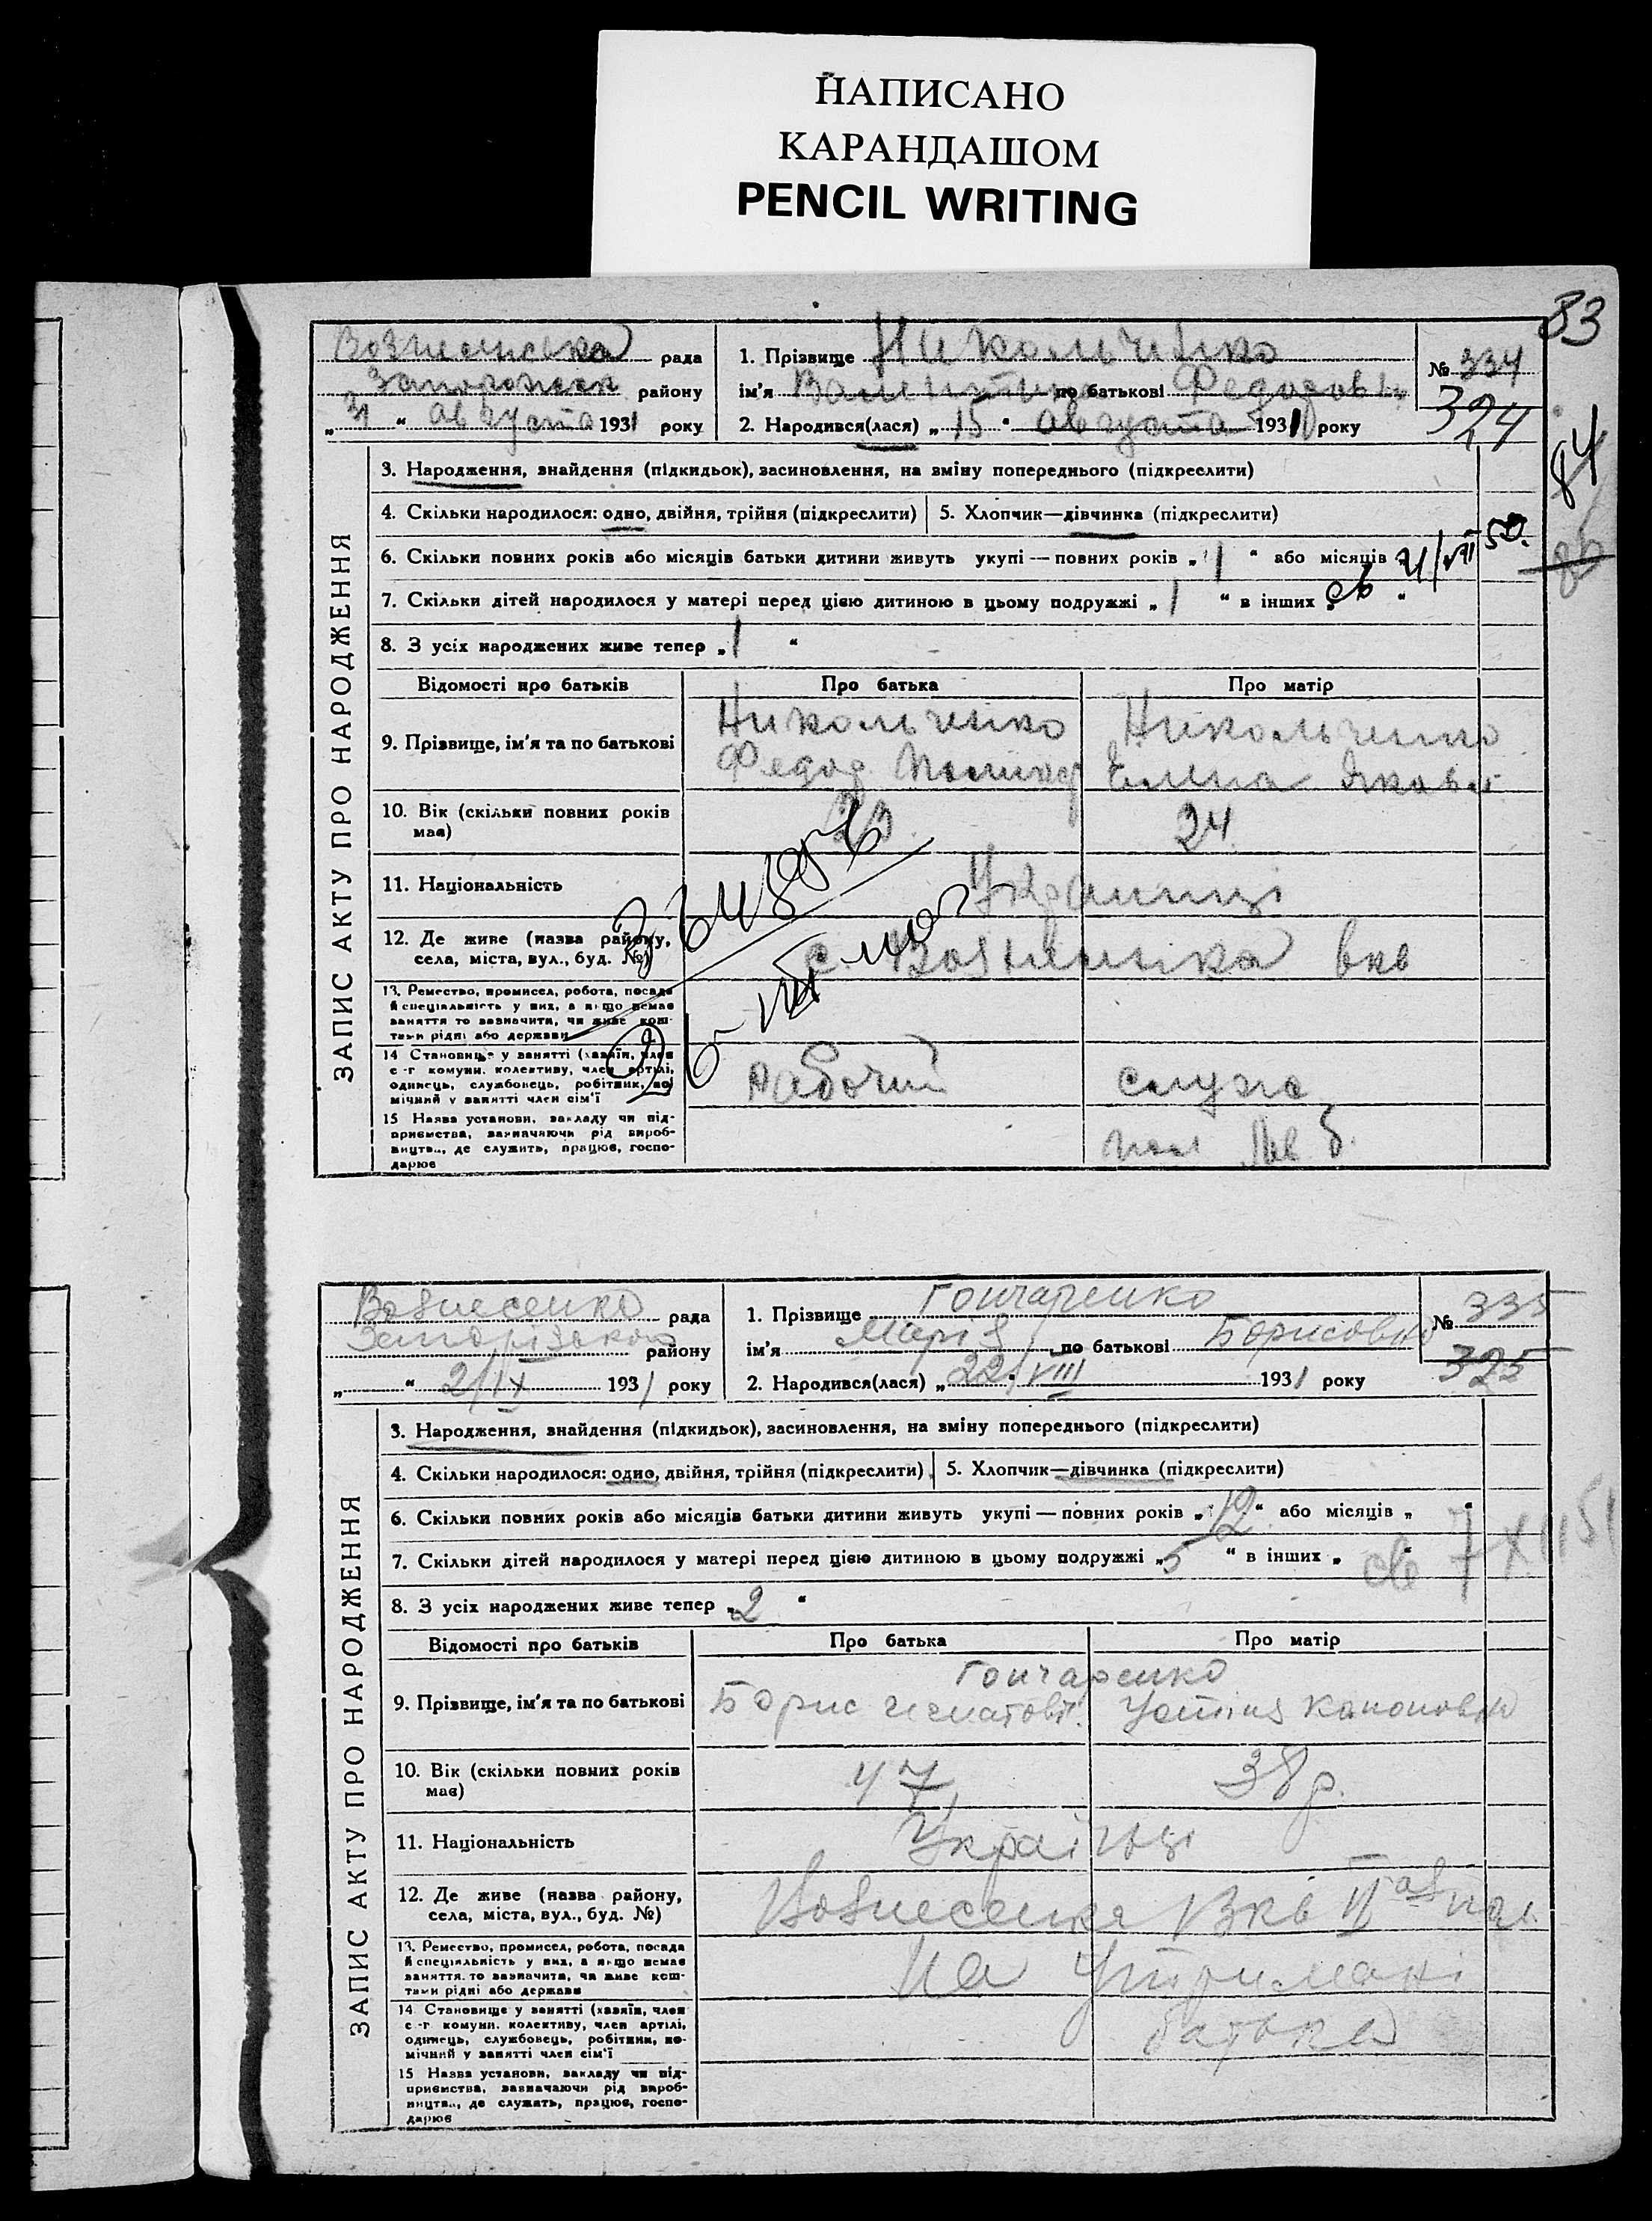 НАПИСАНО
КАРАНДАШОМ
PENCIL WRITING
83
84
ЗАПИС АКТУ ПРО НАРОДЖЕННЯ
рада
району
„31“ августа 1931 року
1. Прізвище Никольченко
ім'я Валентина по батькові Федоровн
2. Народився(лася) „15“ августа 1931 року
№ 334
324
3. Народження, знайдення (підкидьок), засиновлення, на зміну попереднього (підкреслити)
4. Скільки народилося: одно, двійня, трійня (підкреслити)
5. Хлопчик—дівчинка (підкреслити)
6. Скільки повних років або місяців батьки дитини живуть укупі — повних років „1“ або місяців
7. Скільки дітей народилося у матері перед цією дитиною в цьому подружжі „1“ в інших „
8. З усіх народжених живе тепер „1“
Відомості про батьків Про батька Про матір
9. Прізвище, ім'я та по батькові
Никольченко Никольченко
Федор Елена Яковл
10. Вік (скільки повних років має) 24
11. Національність Українці
12. Де живе (назва району, села, міста, вул., буд. №) с. Вознесенка вкв
13. Ремество, промисел, робота, посада й спеціяльність у них, а якщо немає заняття то зазначити, чи живе коштами рідні або держави
14 Становище у занятті (хазяїн, член с.-г комуни, колективу, член артілі, одинець, службовець, робітник, помічний у занятті член сім'ї
Рабочий служа
15 Назва установи, закладу чи підприємства, зазначаючи рід виробництва, де служить, працює, господарює
ЗАПИС АКТУ ПРО НАРОДЖЕННЯ
Вознесенка рада
району
„ “ 2/IX 1931 року
1. Прізвище Гончаренко
ім'я Марія по батькові Борисовна
2. Народився(лася) „22/VIII 1931 року
№ 335
325
3. Народження, знайдення (підкидьок), засиновлення, на зміну попереднього (підкреслити)
4. Скільки народилося: одно, двійня, трійня (підкреслити)
5. Хлопчик—дівчинка (підкреслити)
6. Скільки повних років або місяців батьки дитини живуть укупі — повних років „12“ або місяців „ “
7. Скільки дітей народилося у матері перед цією дитиною в цьому подружжі „5“ в інших „ “
св 7 XII 51
8. З усіх народжених живе тепер „2“
Відомості про батьків Про батька Про матір
Гончаренко
9. Прізвище, ім'я та по батькові Борис Устінія Кононовна
10. Вік (скільки повних років має) 47 38 р.
11. Національність Українці
12. Де живе (назва району, села, міста, вул., буд. №) Вознесенка Вкв
13. Ремество, промисел, робота, посада й спеціяльність у них, а якщо немає заняття, то зазначити, чи живе коштами рідні або держави
На утримані
14 Становище у занятті (хазяїн, член с.-г комуни, колективу, член артілі, одинець, службовець, робітник, помічний у занятті член сім'ї
батька
15 Назва установи, закладу чи підприємства, зазначаючи рід виробництва, де служить, працює, господарює